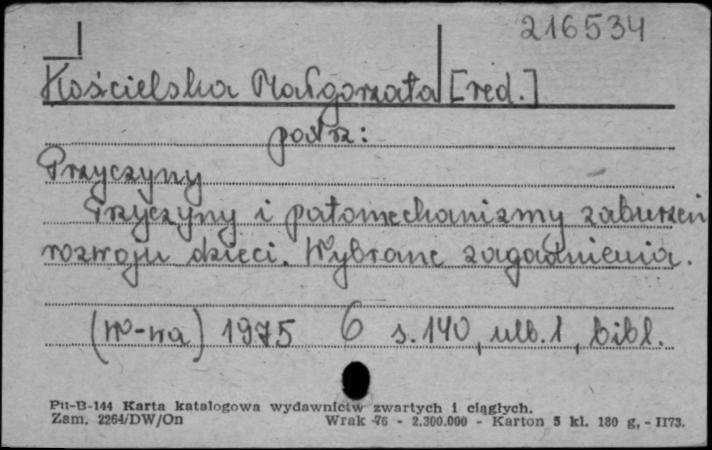 216534
Kościelska Małgorzata [red.]
patrz:
Przyczyny
Przyczyny i patomechanizmy zaburzeń
rozwoju dzieci. Wybrane zagadnienia.
(W-wa) 1975 6 s. 140, ulb. 1, bibl.
Pu-B-144 Karta katalogowa wydawnictw zwartych i ciągłych.
Zam. 2264/DW/On Wrak -76 - 2.300.000 - Karton 5 kl. 180 g, - II73.